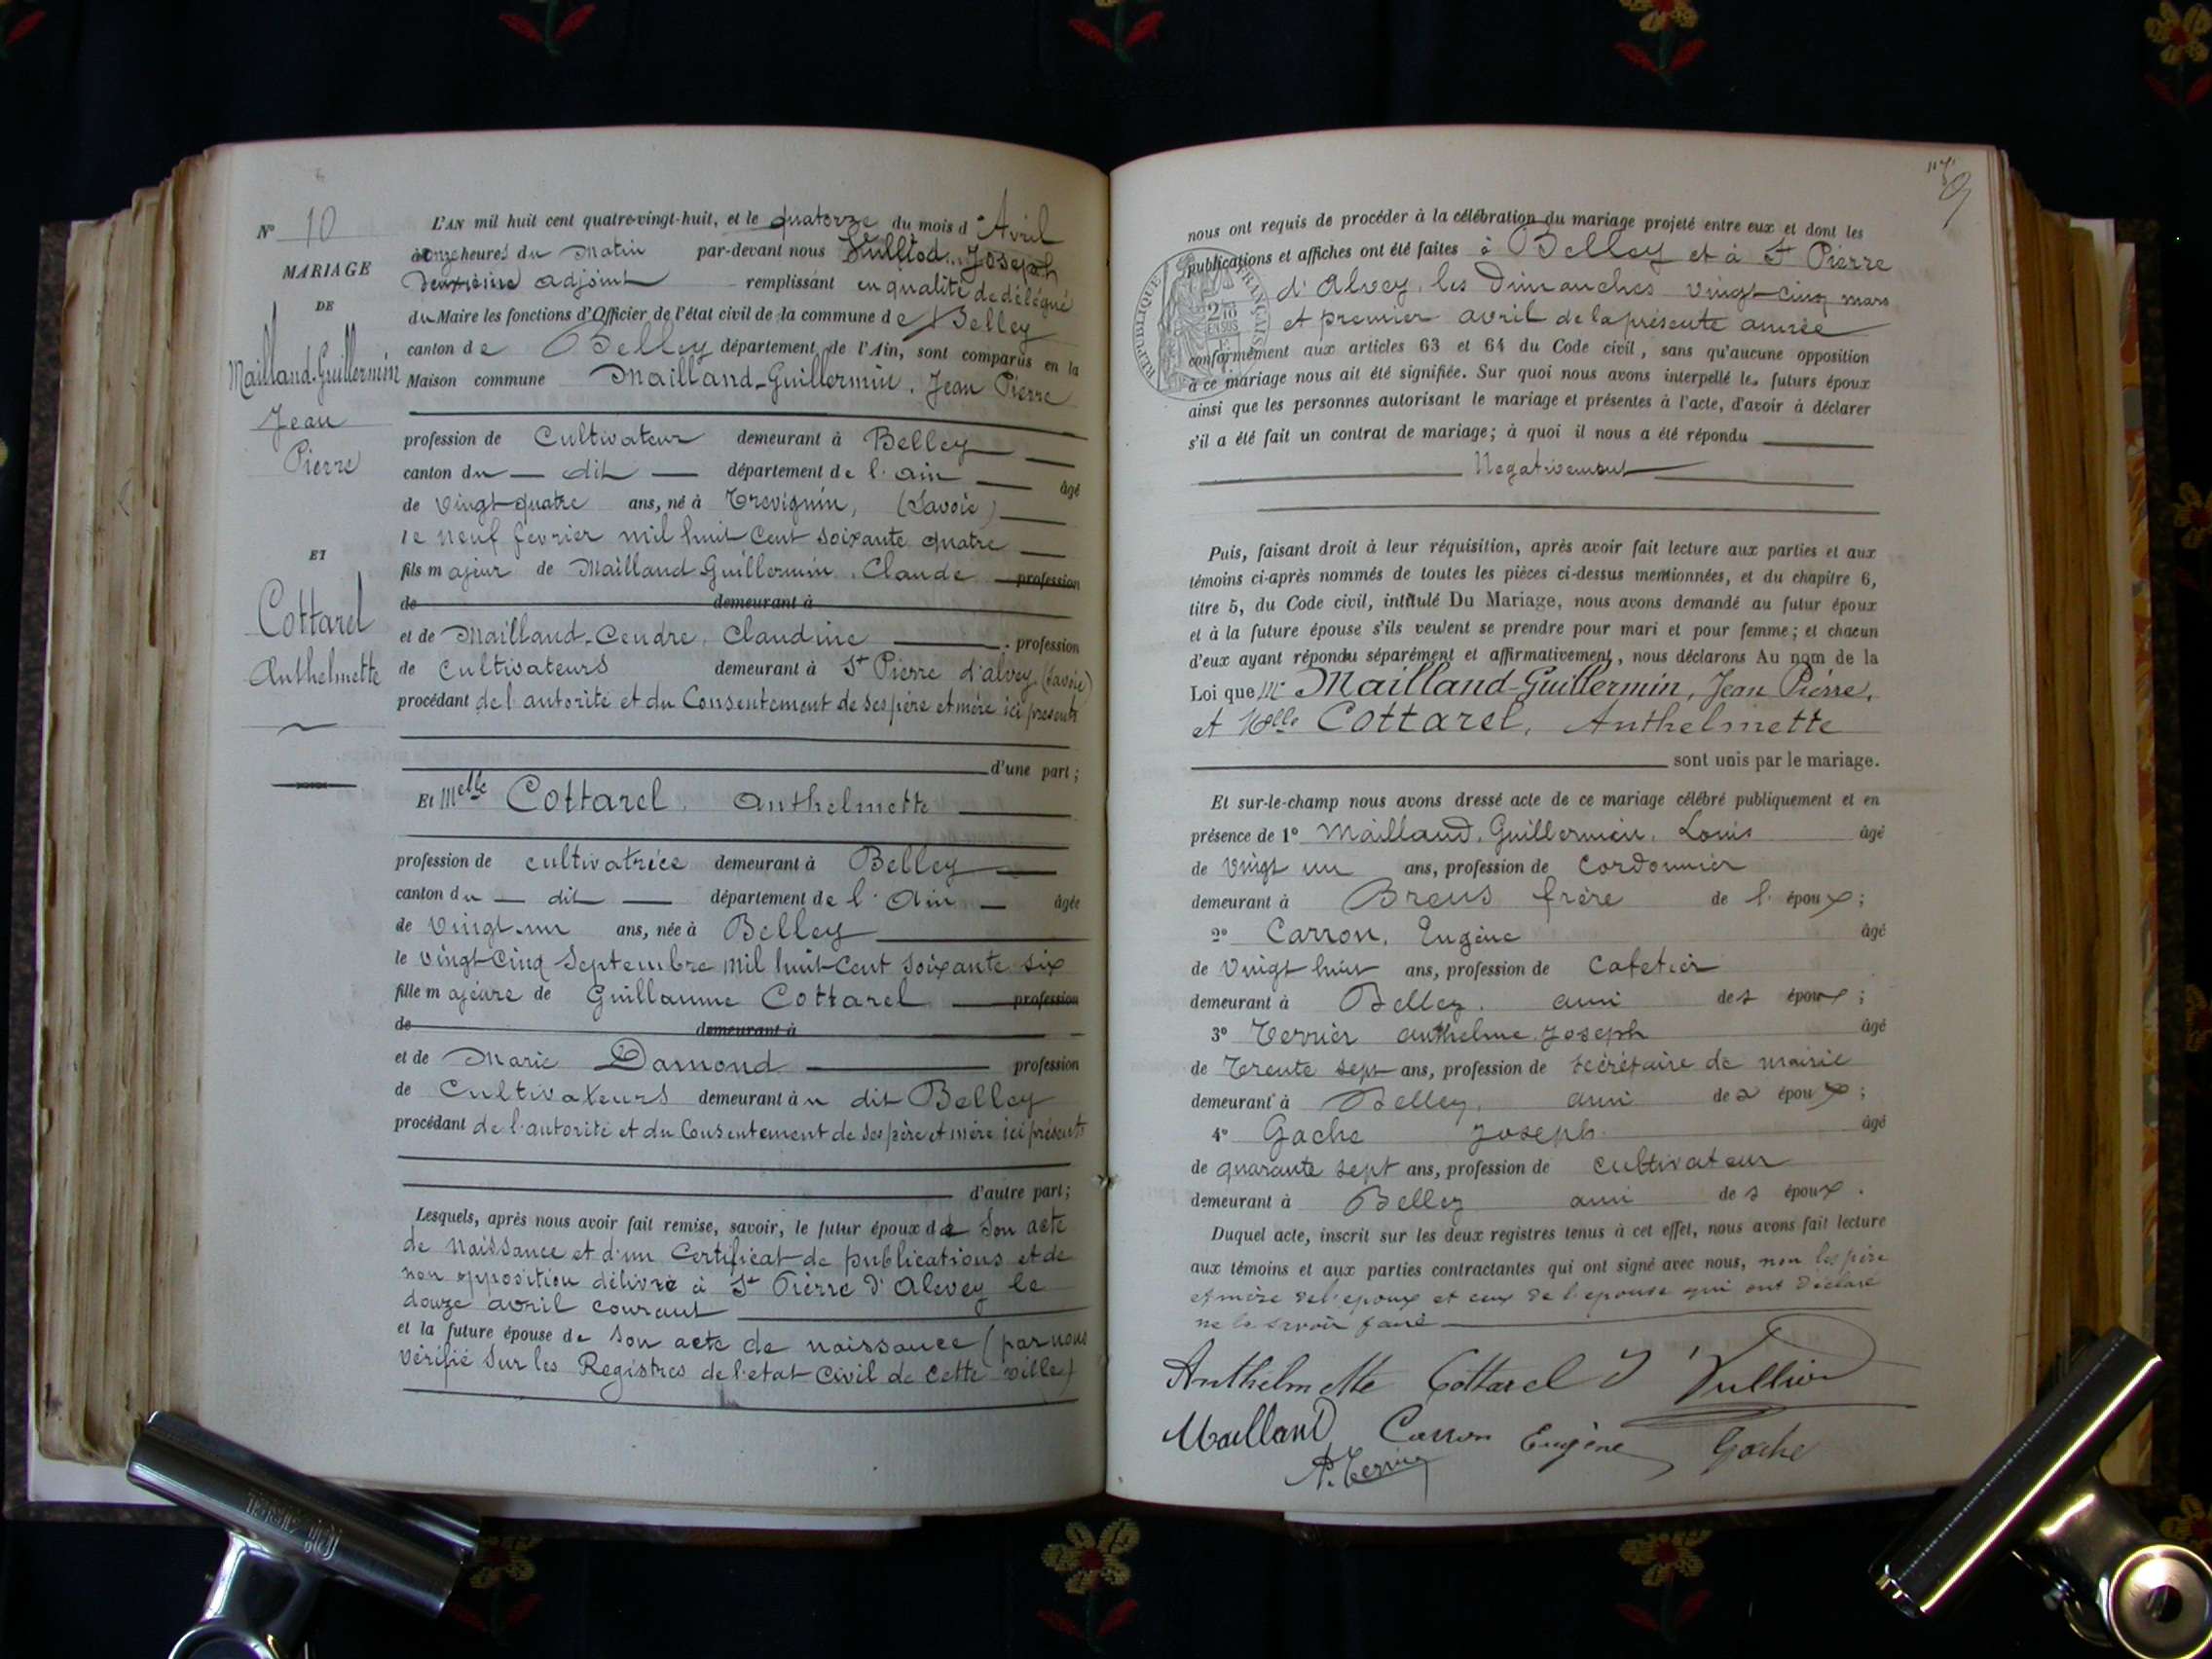 N° 10
MARIAGE
DE
Mailland-Guillermin
Jean
Pierre
ET
Cottarel
Anthelmette
L'AN mil huit cent quatre-vingt-huit, et le quatorze du mois d'Avril
à onze heures du Matin par-devant nous Joseph
Deuxième adjoint remplissant en qualité de délégué
du Maire les fonctions d'Officier de l'état civil de la commune de Belley
canton de Belley département de l'Ain, sont comparus en la
Maison commune Mailland-Guillermin, Jean Pierre
profession de Cultivateur demeurant à Belley
canton du dit département de l'ain âgé
de Vingt-quatre ans, né à Trévignin, (Savoie)
le neuf février mil huit Cent soixante quatre
fils majeur de Mailland Guillermin, Claude profession
de demeurant à
et de Mailland-Cendre, Claudine profession
de Cultivateurs demeurant à St Pierre d'alvey (Savoie)
procédant de l'autorité et du Consentement de ses père et mère ici présents
d'une part;
Et Melle Cottarel, Anthelmette
profession de cultivatrice demeurant à Belley
canton du dit département de l'Ain âgée
de Vingt-un ans, née à Belley
le vingt-Cinq Septembre mil huit-Cent Soixante six
fille majeure de Guillaume Cottarel profession
de demeurant à
et de Marie Damond profession
de Cultivateurs demeurant à u dit Belley
procédant de l'autorité et du Consentement de ses père et mère ici présents
d'autre part;
Lesquels, après nous avoir fait remise, savoir, le futur époux de Son acte
de Naissance et d'un Certificat de publications et de
non opposition délivré à St Pierre d'Alevey le
douze avril courant
et la future épouse de Son acte de naissance (par nous
Vérifié Sur les Registres de l'etat-Civil de Cette ville)
9
nous ont requis de procéder à la célébration du mariage projeté entre eux et dont les
publications et affiches ont été faites à Belley et à St Pierre
d'Alvey, les Dimanches vingt-cinq mars
et premier avril de la présente année
conformément aux articles 63 et 64 du Code civil, sans qu'aucune opposition
à ce mariage nous ait été signifiée. Sur quoi nous avons interpellé les futurs époux
ainsi que les personnes autorisant le mariage et présentes à l'acte, d'avoir à déclarer
s'il a été fait un contrat de mariage; à quoi il nous a été répondu
Negativement
Puis, faisant droit à leur réquisition, après avoir fait lecture aux parties et aux
témoins ci-après nommés de toutes les pièces ci-dessus mentionnées, et du chapitre 6,
titre 5, du Code civil, intitulé Du Mariage, nous avons demandé au futur époux
et à la future épouse s'ils veulent se prendre pour mari et pour femme; et chacun
d'eux ayant répondu séparément et affirmativement, nous déclarons Au nom de la
Loi que Mr Mailland-Guillermin, Jean Pierre,
et Melle Cottarel, Anthelmette
sont unis par le mariage.
Et sur-le-champ nous avons dressé acte de ce mariage célébré publiquement et en
présence de 1° Mailland, Guillermin, Louis âgé
de Vingt un ans, profession de Cordonnier
demeurant à Brens frère de l'époux;
2° Carron, Eugène âgé
de Vingt huit ans, profession de Cafetier
demeurant à Belley, ami des époux;
3° Terrier anthelme Joseph âgé
de Trente sept ans, profession de secrétaire de mairie
demeurant à Belley, ami des époux;
4° Gache Joseph âgé
de quarante sept ans, profession de cultivateur
demeurant à Belley ami des époux.
Duquel acte, inscrit sur les deux registres tenus à cet effet, nous avons fait lecture
aux témoins et aux parties contractantes qui ont signé avec nous, non les père
et mère de l'epoux et ceux de l'epouse qui ont Déclaré
ne le savoir faire
Anthelmette Cottarel J Vullliod
Mailland Carron Eugène Gache
A. Terrier